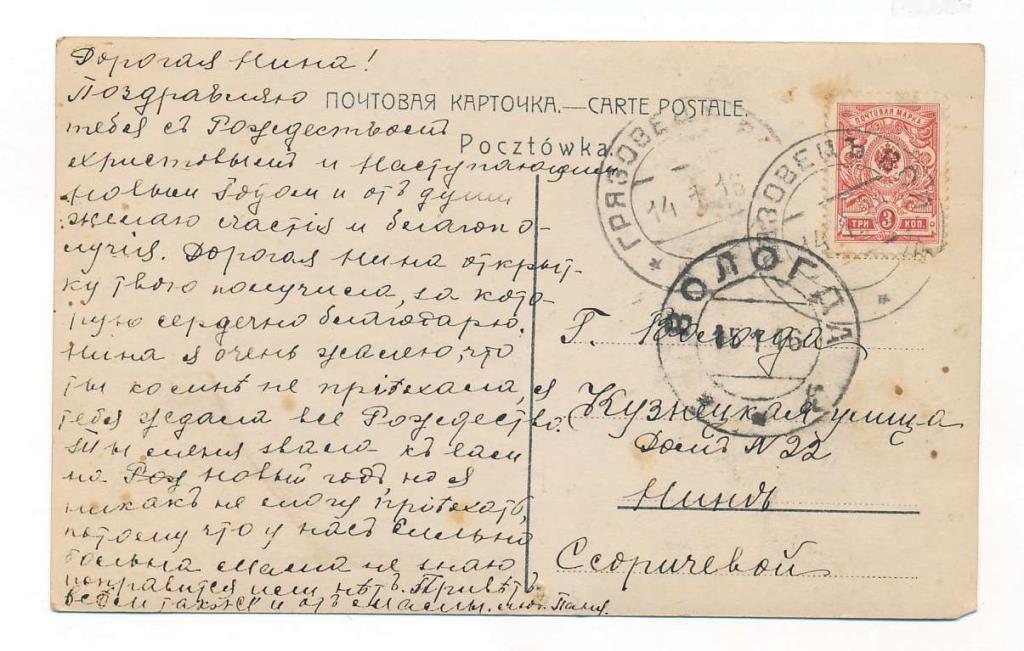 Дорогая Нина!
Поздравляю
тебя съ Рождествомъ
христовымъ и наступающим
новым годом и отъ души
желаю счастія и благопо-
лучія. Дорогая Нина открыт-
ку твою получила, за кото-
рую сердечно благодарю.
Нина я очень жалею, что
ты ко мнѣ не пріѣхала, я
тебя ждала все Рождество.
Ты меня звала къ вам
на Рож новый годъ, но я
никакъ не могу пріѣхать,
потому что у насъ сильно
больна мама не знаю
поправится или нѣтъ. Привѣтъ
всем также и отъ мамы. лю. Паня.
ПОЧТОВАЯ КАРТОЧКА.—CARTE POSTALE.
Pocztówka.
ГРЯЗОВЕЦЪ
14 1 16
ПОЧТОВАЯ МАРКА
3
ТРИ КОП.
ЯЗОВЕЦЪ ВОЛ
ВОЛОГДА
15 1 16
Г. Вологда
Кузнецкая улица
Домъ N 22
Нинѣ
Ссоричевой